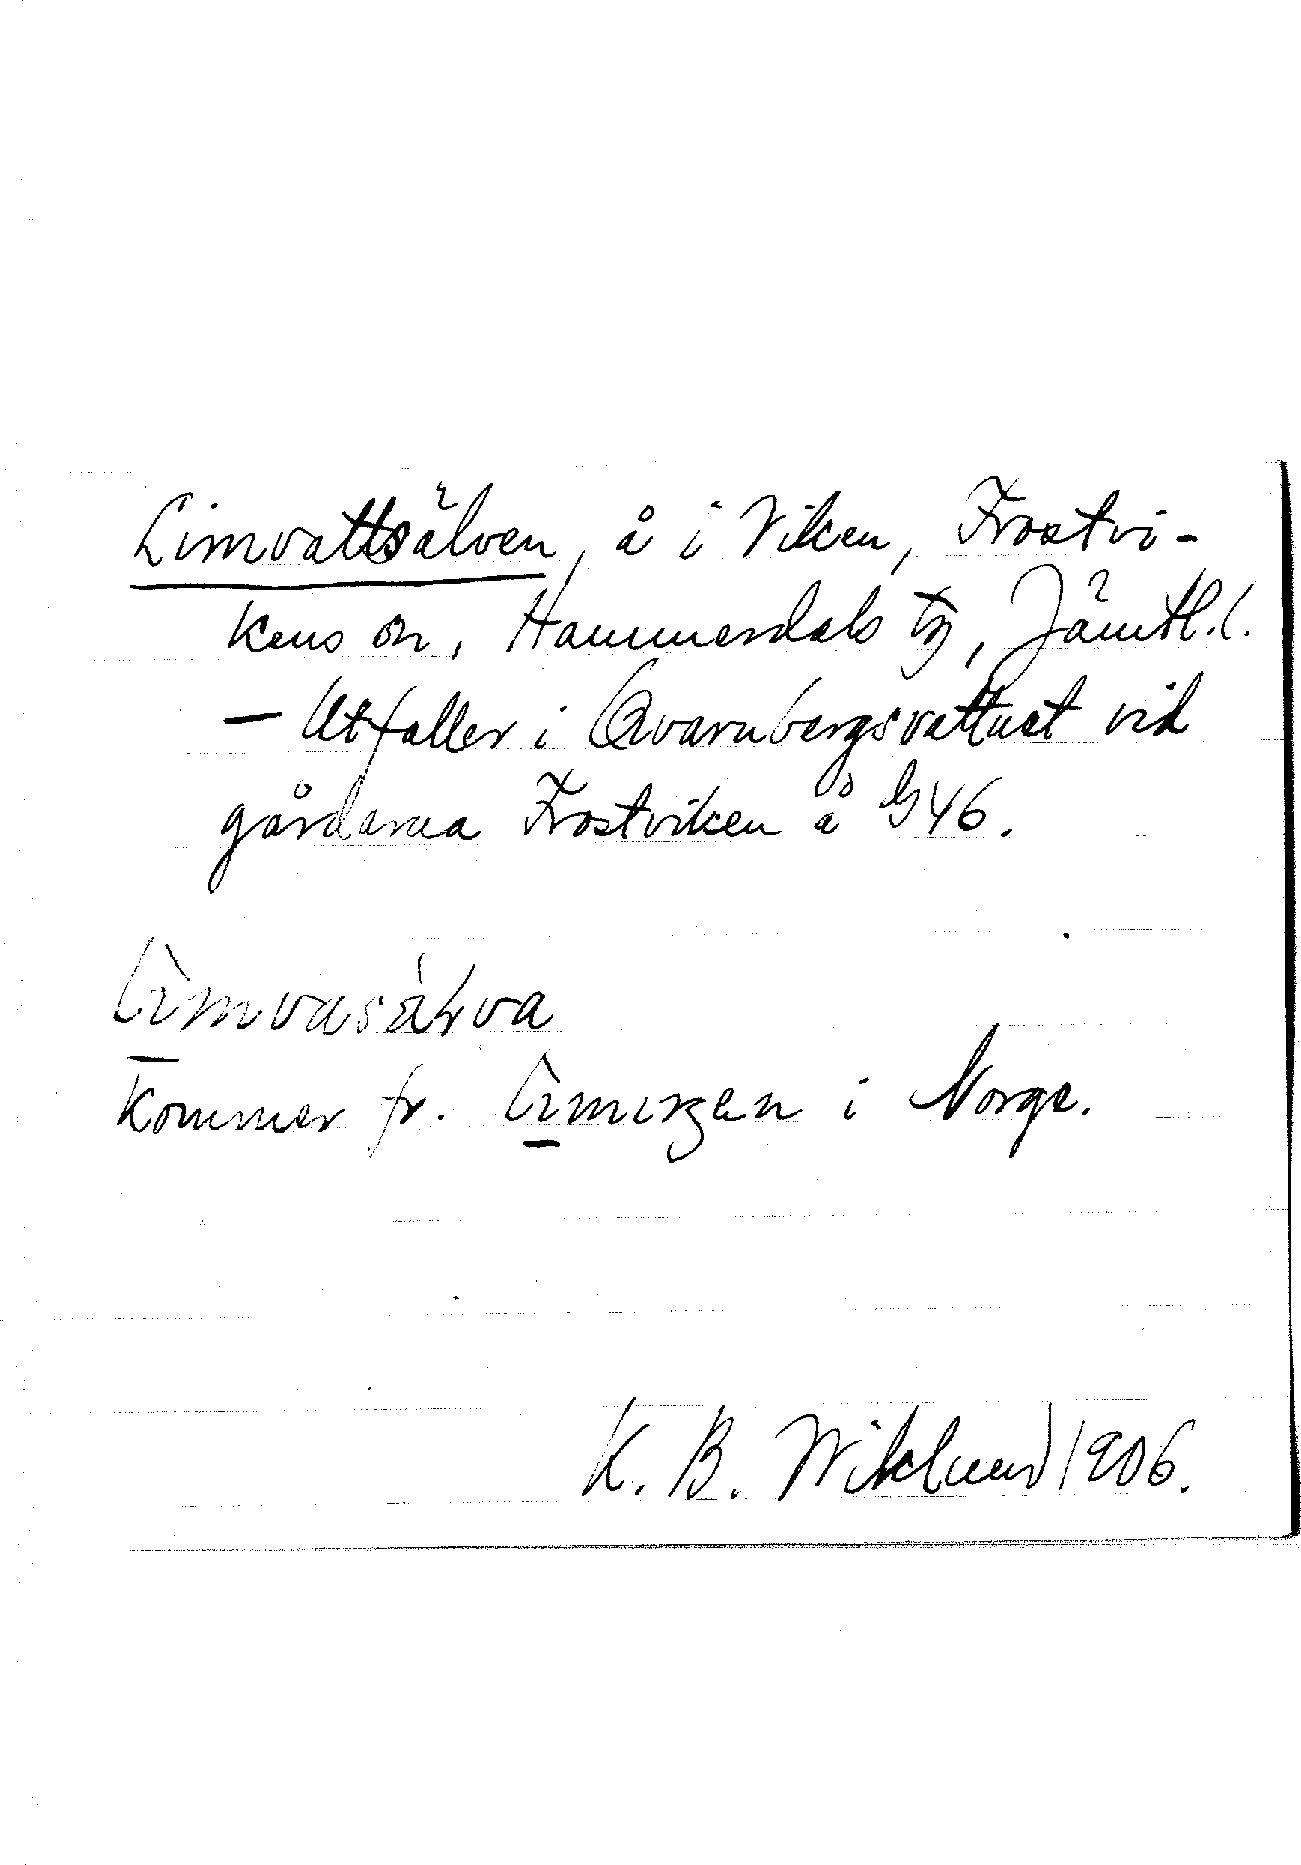 Limvattsälven, å i Viken, Frostvi-
kens sn, Hammerdals tg, Jämtl.l.
— Utfaller i Qvarnbergsvattnet vid
gårdarna Frostviken å G46.
Limvasäƚva
kommer fr. Limiŋgen i Norge.
K. B. Wiklund 1906.